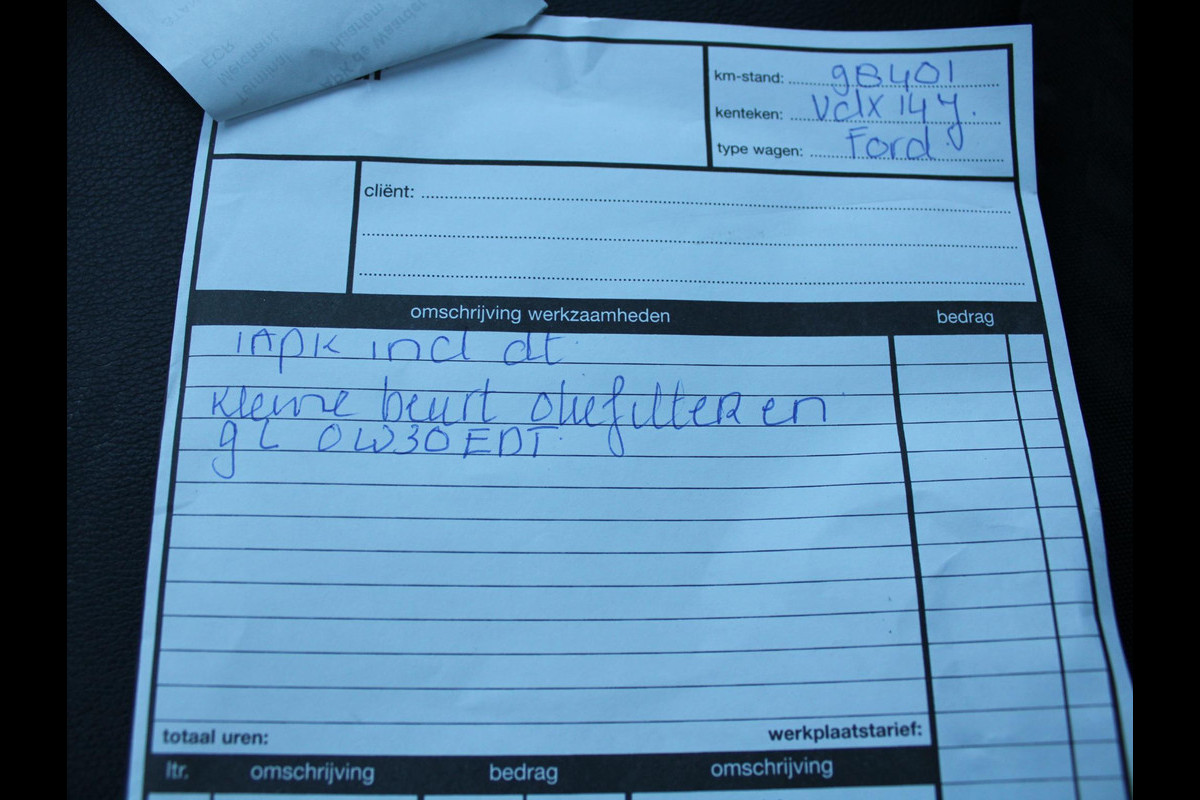 km-stand: 98401
kenteken: VdX 14 y.
type wagen: Ford
cliënt:
omschrijving werkzaamheden bedrag
1 APK incl dt.
kleine beurt oliefilter en
9 L 0W30 EDT.
totaal uren: werkplaatstarief:
ltr. omschrijving bedrag omschrijving